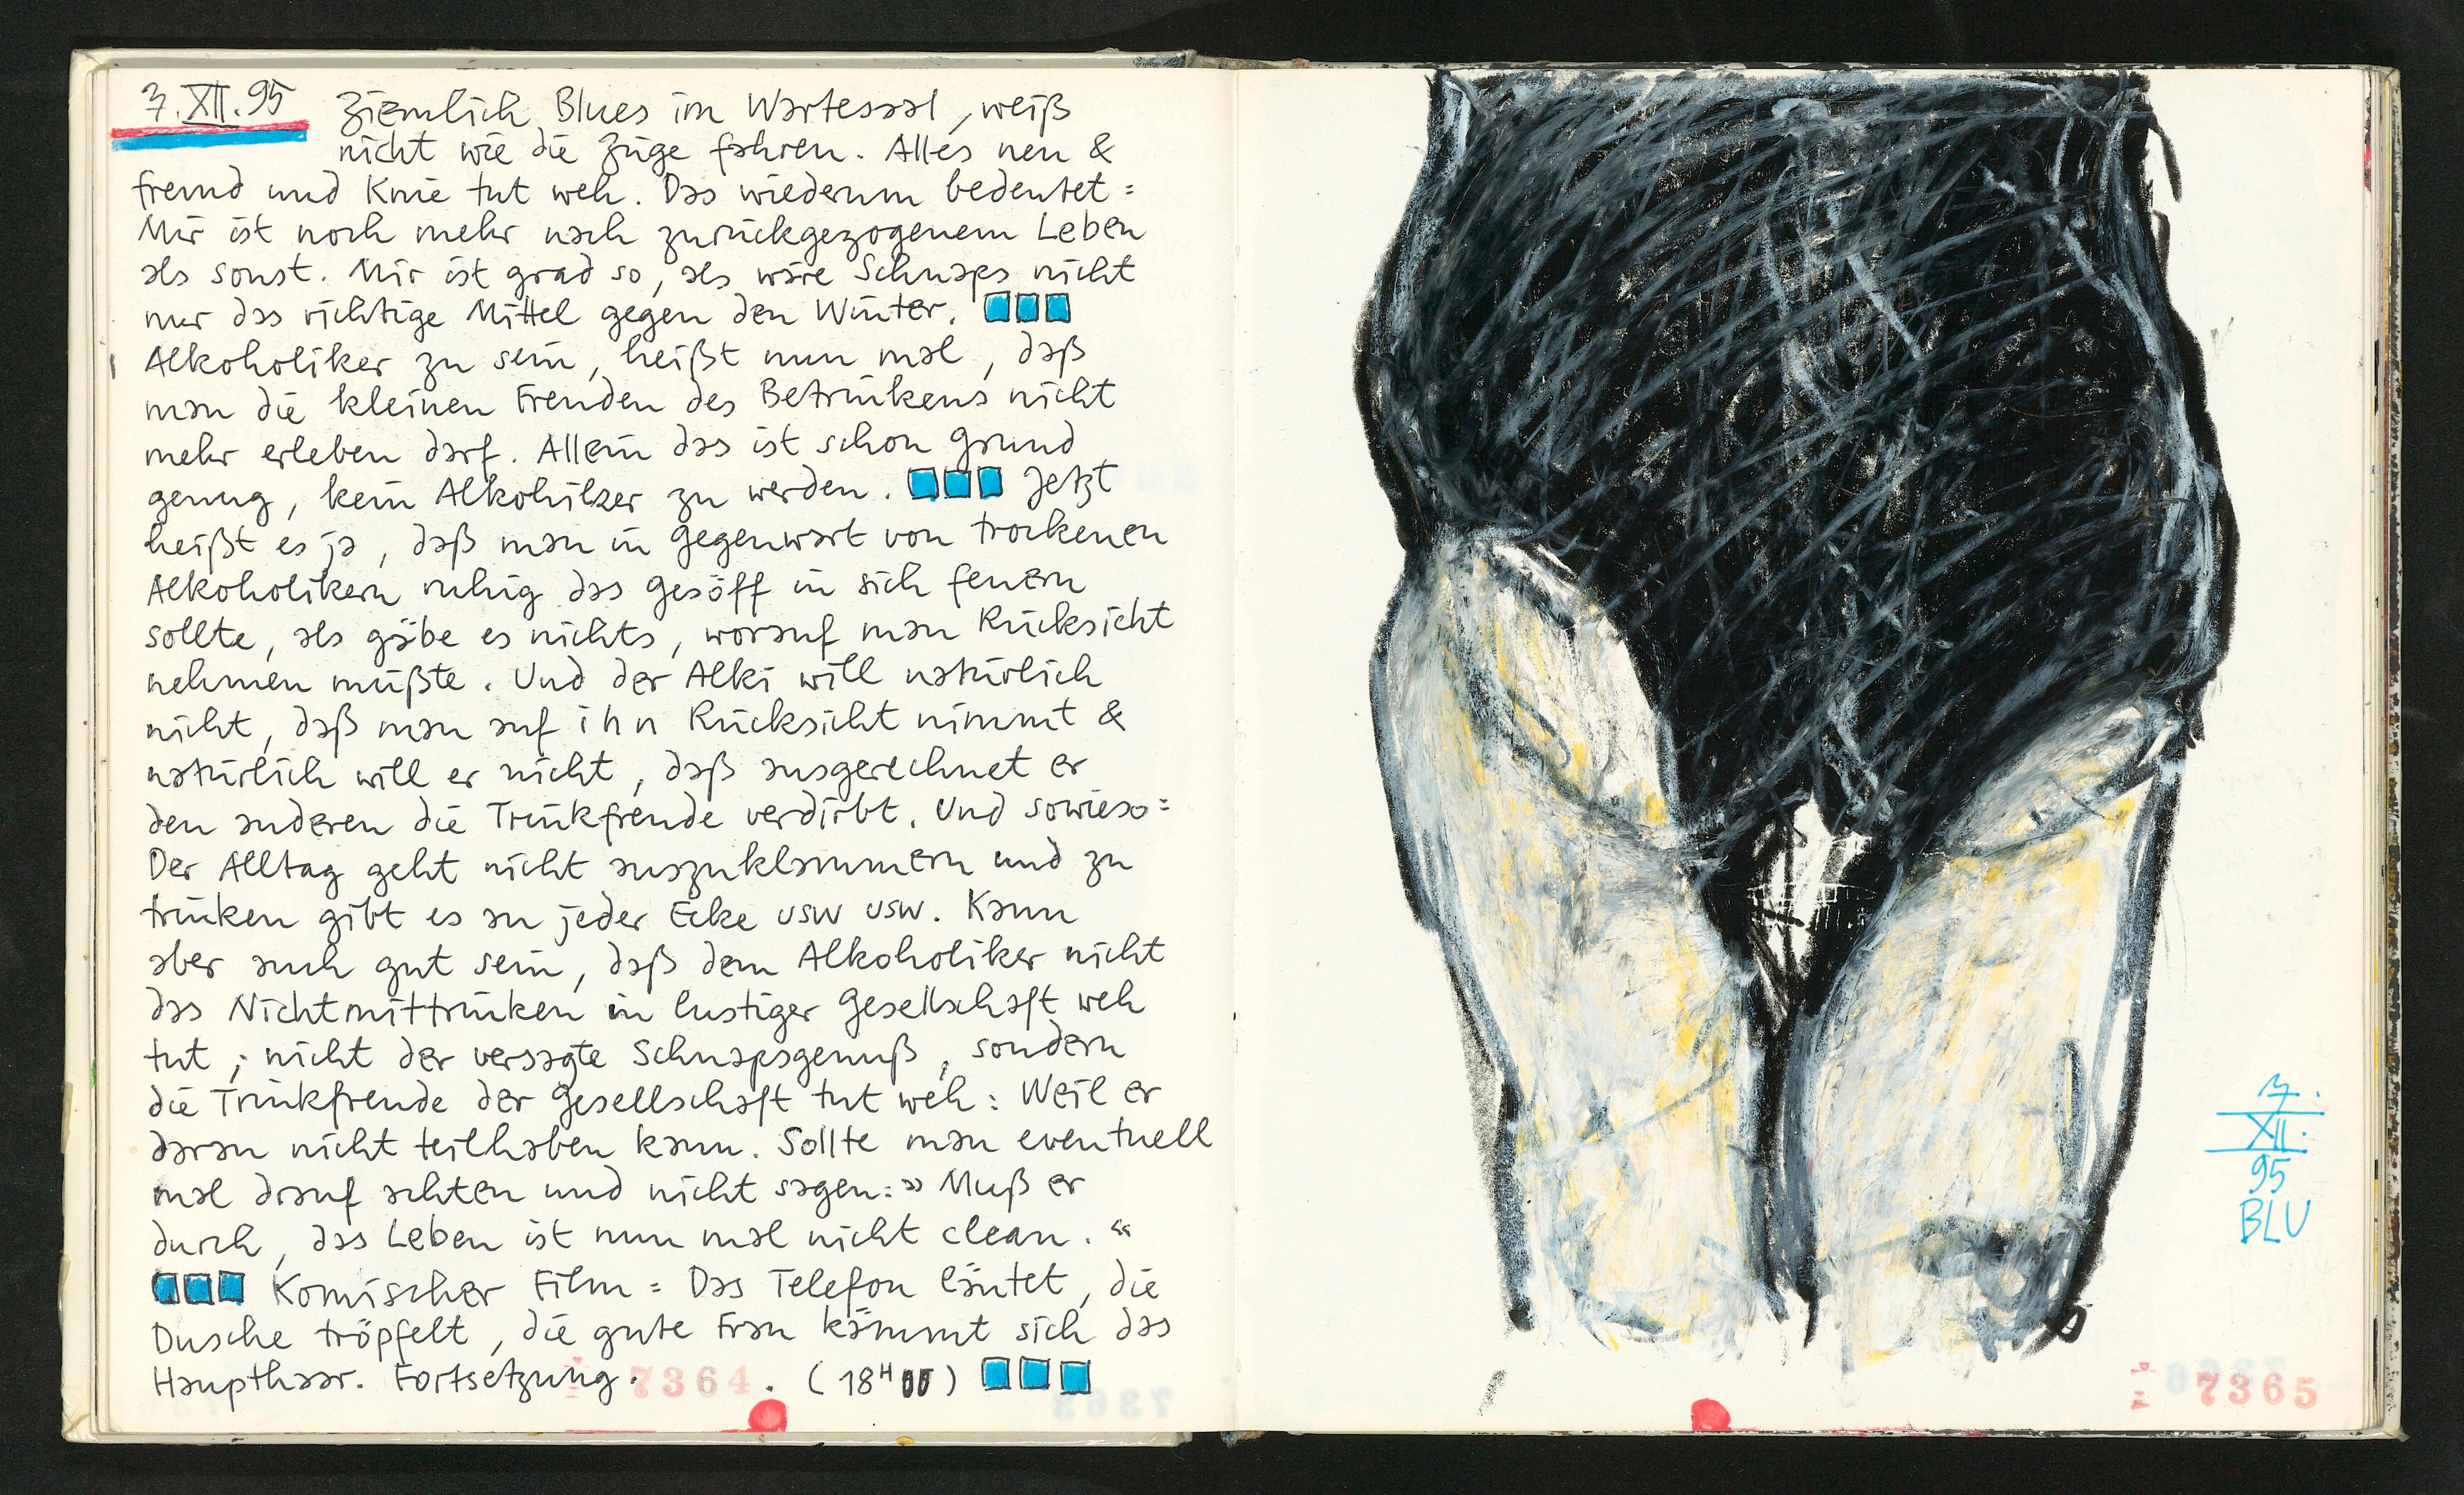 7.XII.95 Ziemlich Blues im Wartesaal, weiß
nicht wie die Züge fahren. Alles neu &
fremd und Knie tut weh. Das wiederum bedeutet:
Mir ist noch mehr nach zurückgezogenem Leben
als sonst. Mir ist grad so, als wäre Schnaps nicht
nur das richtige Mittel gegen den Winter.
Alkoholiker zu sein, heißt nun mal, daß
man die kleinen Freuden des Betrinkens nicht
mehr erleben darf. Allein das ist schon Grund
genug, kein Alkohilker zu werden. Jetzt
heißt es ja, daß man in Gegenwart von trockenen
Alkoholikern ruhig das Gesöff in sich feuern
sollte, als gäbe es nichts, worauf man Rücksicht
nehmen müßte. Und der Alki will natürlich
nicht, daß man auf ihn Rücksicht nimmt &
natürlich will er nicht, daß ausgerechnet er
den anderen die Trinkfreude verdirbt. Und sowieso:
Der Alltag geht nicht auszuklammern und zu
trinken gibt es an jeder Ecke usw usw. Kann
aber auch gut sein, daß dem Alkoholiker nicht
das Nichtmittrinken in lustiger Gesellschaft weh
tut; nicht der versagte Schnapsgenuß, sondern
die Trinkfreude der Gesellschaft tut weh: Weil er
daran nicht teilhaben kann. Sollte man eventuell
mal drauf achten und nicht sagen: »Muß er
durch, das Leben ist nun mal nicht clean.«
Komischer Film: Das Telefon läutet, die
Dusche tröpfelt, die gute Frau kämmt sich das
Haupthaar. Fortsetzung. 7364. (18H00)
7.
XII.
95
BLU
7365